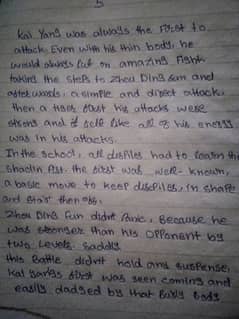 5
Kai Yang was always the First to
attack. Even with his thin body, he
would always put on amazing Fight.
taking the steps to Zhou Ding sum and
afterwards, a simple and direct attack,
then a tiger fist his attacks were
strong and it self like all of his energy
was in his attacks.
In the School, all disfiles had to learn the
shaolin fist. the first was well-known,
a basic move to keep disciples, in shape
and start then off.
Zhou Ding fun didnt Panic, Because he
was stronger than his opponent by
two Levels. Saddly
this Battle didnt hold any suspense,
kai Yangs first was seen coming and
easily dodged by that Body